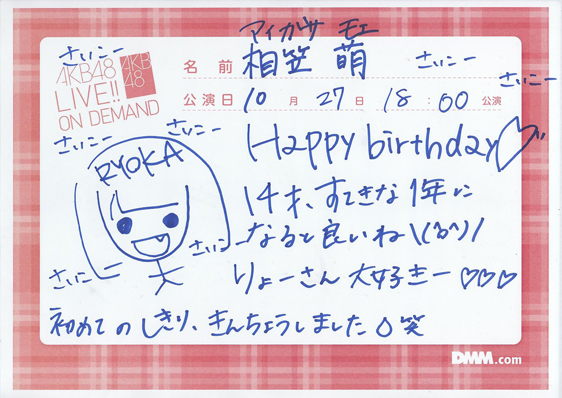 アイガサ モエ
名前 相笠 萌
さいこー
さいこー
さいこー
AKB48
LIVE!!
ON DEMAND
AKB
48
公演日 10月27日 18:00 公演
さいこー
さいこー
RYOKA
Happy birthday♡
14才、すてきな1年に
なると良いね\(^o^)/
さいこー
さいこー
りょーさん 大好きー♡♡♡
初めてのしきり、きんちょうしました 笑
DMM.com